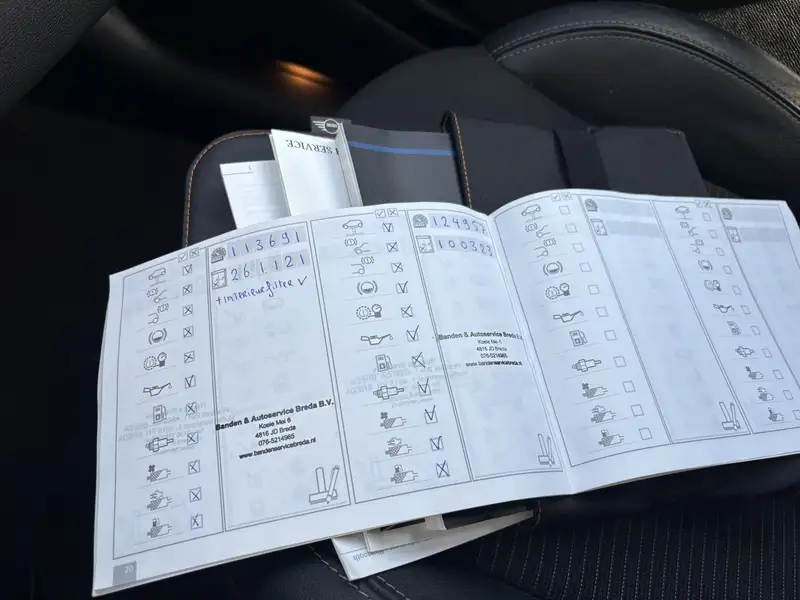 SERVICE
113691
261121
+ interieurfilter √
Banden & Autoservice Breda B.V.
Koele Mei 6
4816 JD Breda
076-5214965
www.bandenservicebreda.nl
20
124957
100323
Banden & Autoservice Breda B.V.
Koele Mei 6
4816 JD Breda
076-5214965
www.bandenservicebreda.nl